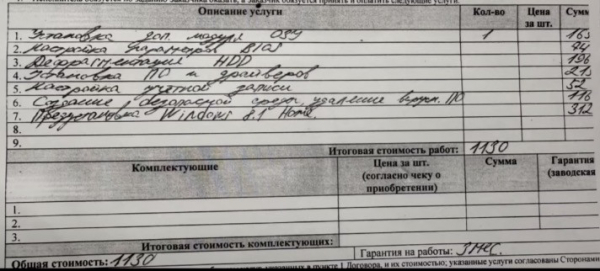 1. Исполнитель обязуется по заданию Заказчика оказать, а Заказчик обязуется принять и оплатить следующие услуги.
Описание услуги Кол-во Цена за шт. Сумм
1. Установка доп. модуля ОЗУ 1 165
2. Настройка параметров BIOS 94
3. Дефрагментация HDD 196
4. Установка ПО и драйверов 215
5. Настройка учетной записи 52
6. Создание безопасной среды, удаление вирусн. ПО 116
7. Предустановка Windows 8.1 Home. 312
8.
9.
Итоговая стоимость работ: 1130
Комплектующие Цена за шт. (согласно чеку о приобретении) Сумма Гарантия (заводская
1.
2.
3.
Итоговая стоимость комплектующих:
Общая стоимость: 1130 Гарантия на работы: 3 мес.
в пункте 1 Договора, и их стоимость; указанные услуги согласованы Сторонами